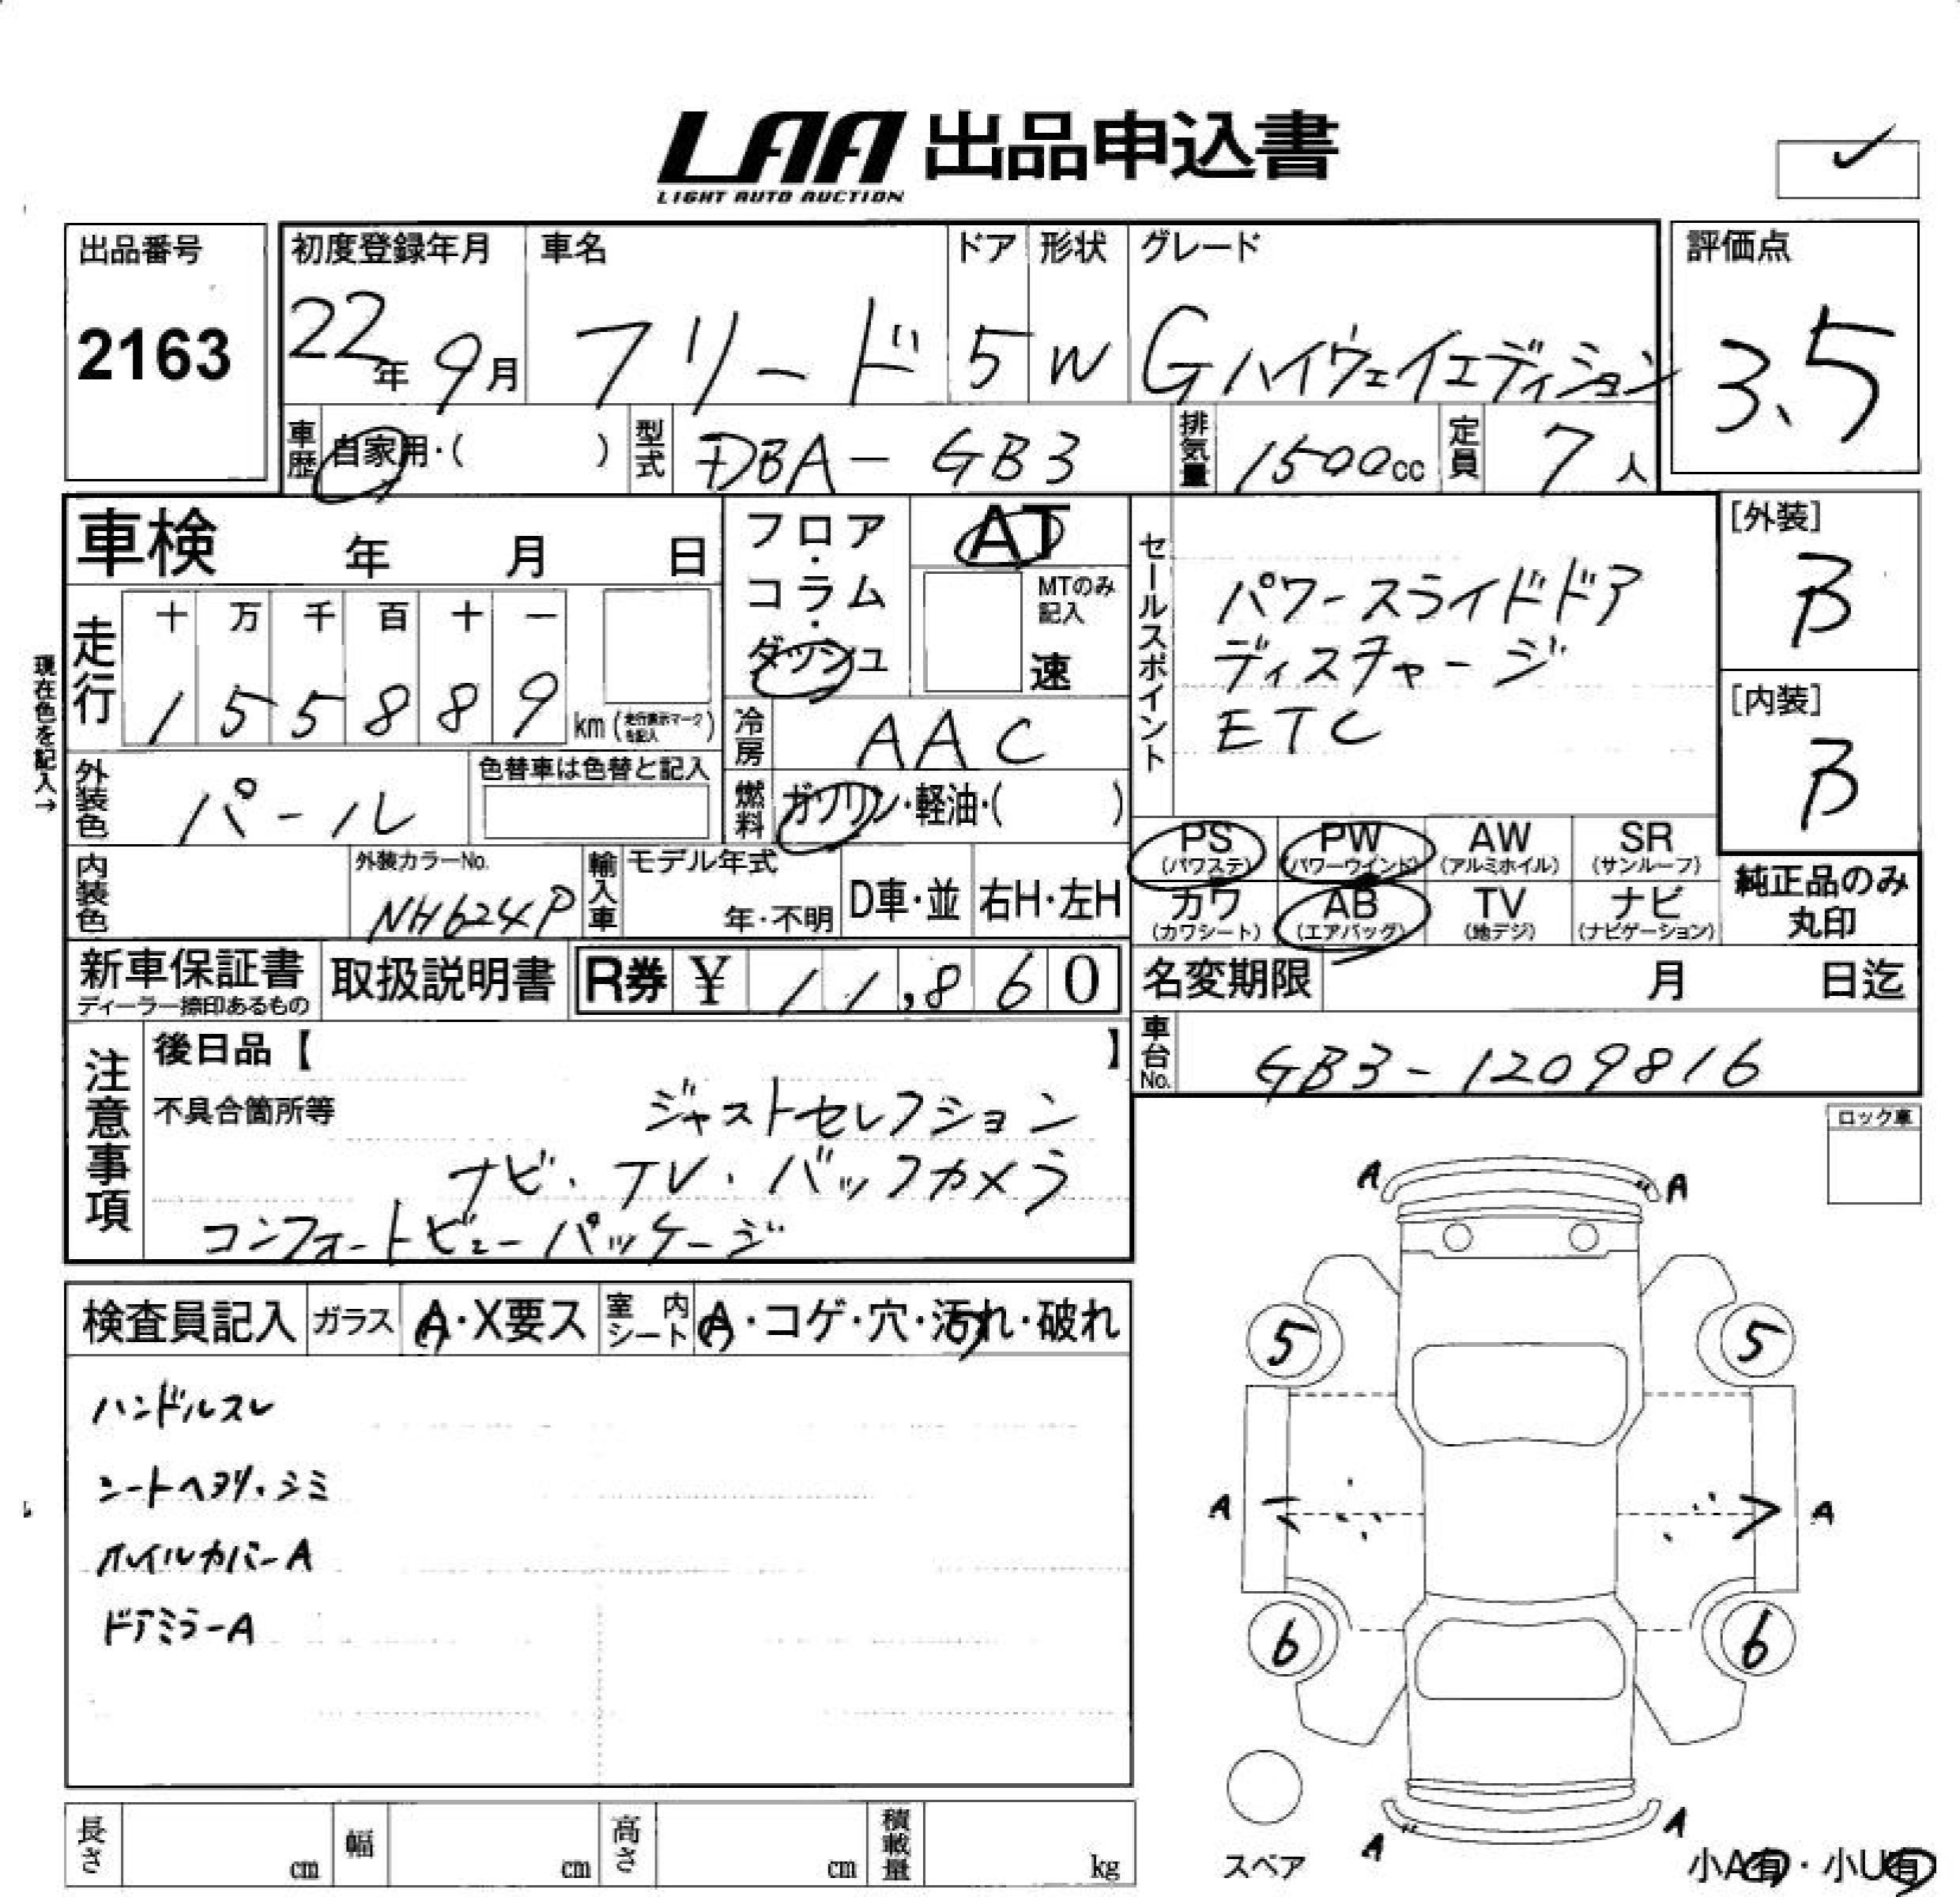 LAA 出品申込書
LIGHT AUTO AUCTION
出品番号
2163
初度登録年月
22年 9月
車名
フリード
ドア
5
形状
W
グレード
Gハイウェイエディション
評価点
3.5
車歴
自家用・( )
型式
DBA-GB3
排気量
1500cc
定員
7人
車検 年 月 日
フロア・コラム・ダッシュ
AT
MTのみ記入
速
セールスポイント
パワースライドドア
ディスチャージ
ETC
[外装]
B
[内装]
B
現在色を記入→
走行
十 万 千 百 十 一
1 5 5 8 8 9 km (走行表示マークを記入)
冷房
AAC
外装色
パール
色替車は色替と記入
燃料
ガソリン・軽油・( )
PS (パワステ)
PW (パワーウインド)
AW (アルミホイル)
SR (サンルーフ)
カワ (カワシート)
AB (エアバッグ)
TV (地デジ)
ナビ (ナビゲーション)
純正品のみ
丸印
内装色
外装カラーNo.
NH624P
輸入車
モデル年式
年・不明
D車・並
右H・左H
新車保証書
ディーラー捺印あるもの
取扱説明書
R券 ¥ 11,860
名変期限 月 日迄
車台No.
GB3-1209816
注意事項
後日品【 】
不具合箇所等
ジャストセレクション
ナビ・TV・バックカメラ
コンフォートビューパッケージ
ロック車
検査員記入
ガラス
A・X要ス
室内シート
A・コゲ・穴・汚れ・破れ
ハンドルスレ
シートヘタリ・シミ
ホイルカバーA
ドアミラーA
A A
5 5
A A
6 6
A A
スペア
小A有・小U有
長さ cm
幅 cm
高さ cm
積載量 kg